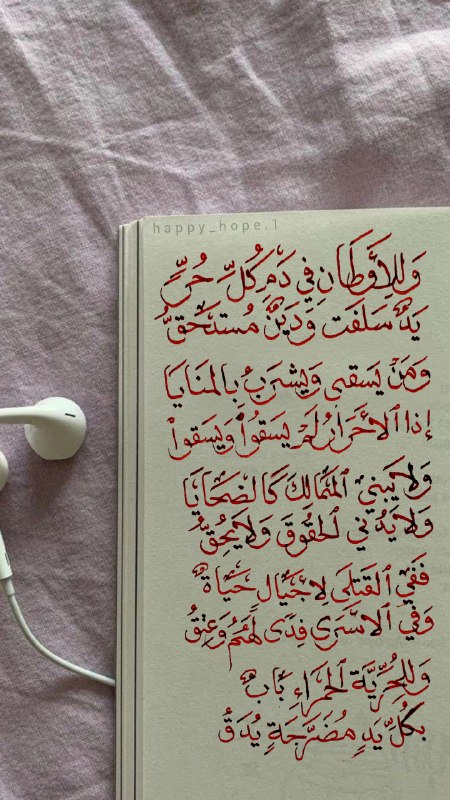 happy_hope.1
وَلِلأَوْطَانِ فِي دَمِ كُلِّ حُرٍّ
يَدٌ سَلَفَت وَدَيْنٌ مُستَحَقُّ
وَمَنْ يَسقى وَيَشرَبُ بِالمَنَايَا
إذا الاحْرَارُ لَمْ يُسقُوا وَيَسقوا
وَلا يَبني المَمَالِكَ كَالضَحَايَا
وَلا يُدني الحُقُوقَ وَلا يُحِقُّ
فَفي القَتلَى لِاجْيَالٍ حَيَاةٌ
وَفي الاسْرَى فِدًى لَهُمُ وَعِتقُ
وَلِلحُرِّيَّةِ الحَمرَاءِ بَابٌ
بِكُلِّ يَدٍ مُضَرَّجَةٍ يُدَقُّ